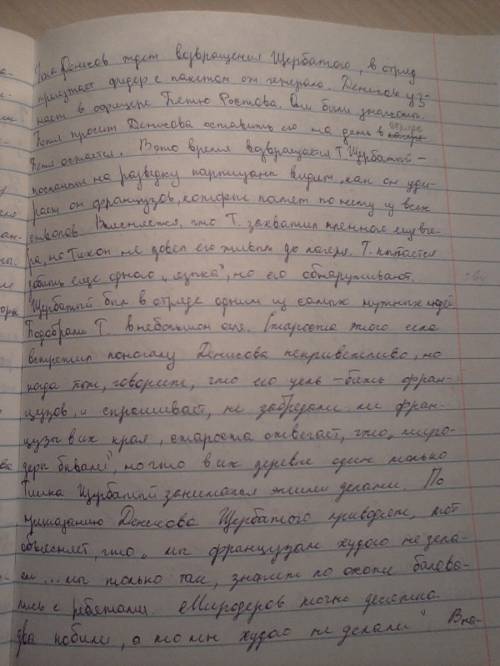 Пока Денисов ждет возвращения Щербатого, в отряд
приезжает офицер с пакетом от генерала. Денисов уз-
нает в офицере Петю Ростова. Они были знакомы.
Петя просит Денисова оставить его на день в отряде
Петя остается. В это время возвращается Т. Щербатый –
посланные на разведку партизаны видят, как он уди-
рает от французов, которые палят по нему из всех
стволов. Выясняется, что Т. захватил пленного еще вче-
ра, но Тихон не довел его живым до лагеря. Т. пытается
добыть еще одного „языка", но его обнаруживают.
Щербатый был в отряде одним из самых нужных людей
Подобрали Т. в небольшом селе. Староста этого села
встретил поначалу Денисова неприветливо, но
когда тот, говорит, что его цель – бить фран-
цузов, и спрашивает, не забредали ли фран-
цузы в их края, староста отвечает, что „миро-
деры бывали", но что в их деревне один только
Тишка Щербатый занимался этими делами. По
приказанию Денисова Щербатого приводят, тот
объясняет, что „мы французам худого не дела-
ем... мы только так, значит по охоте балова-
лись с ребятами. Миродеров точно десятка
два побили, а то мы худого не делали"